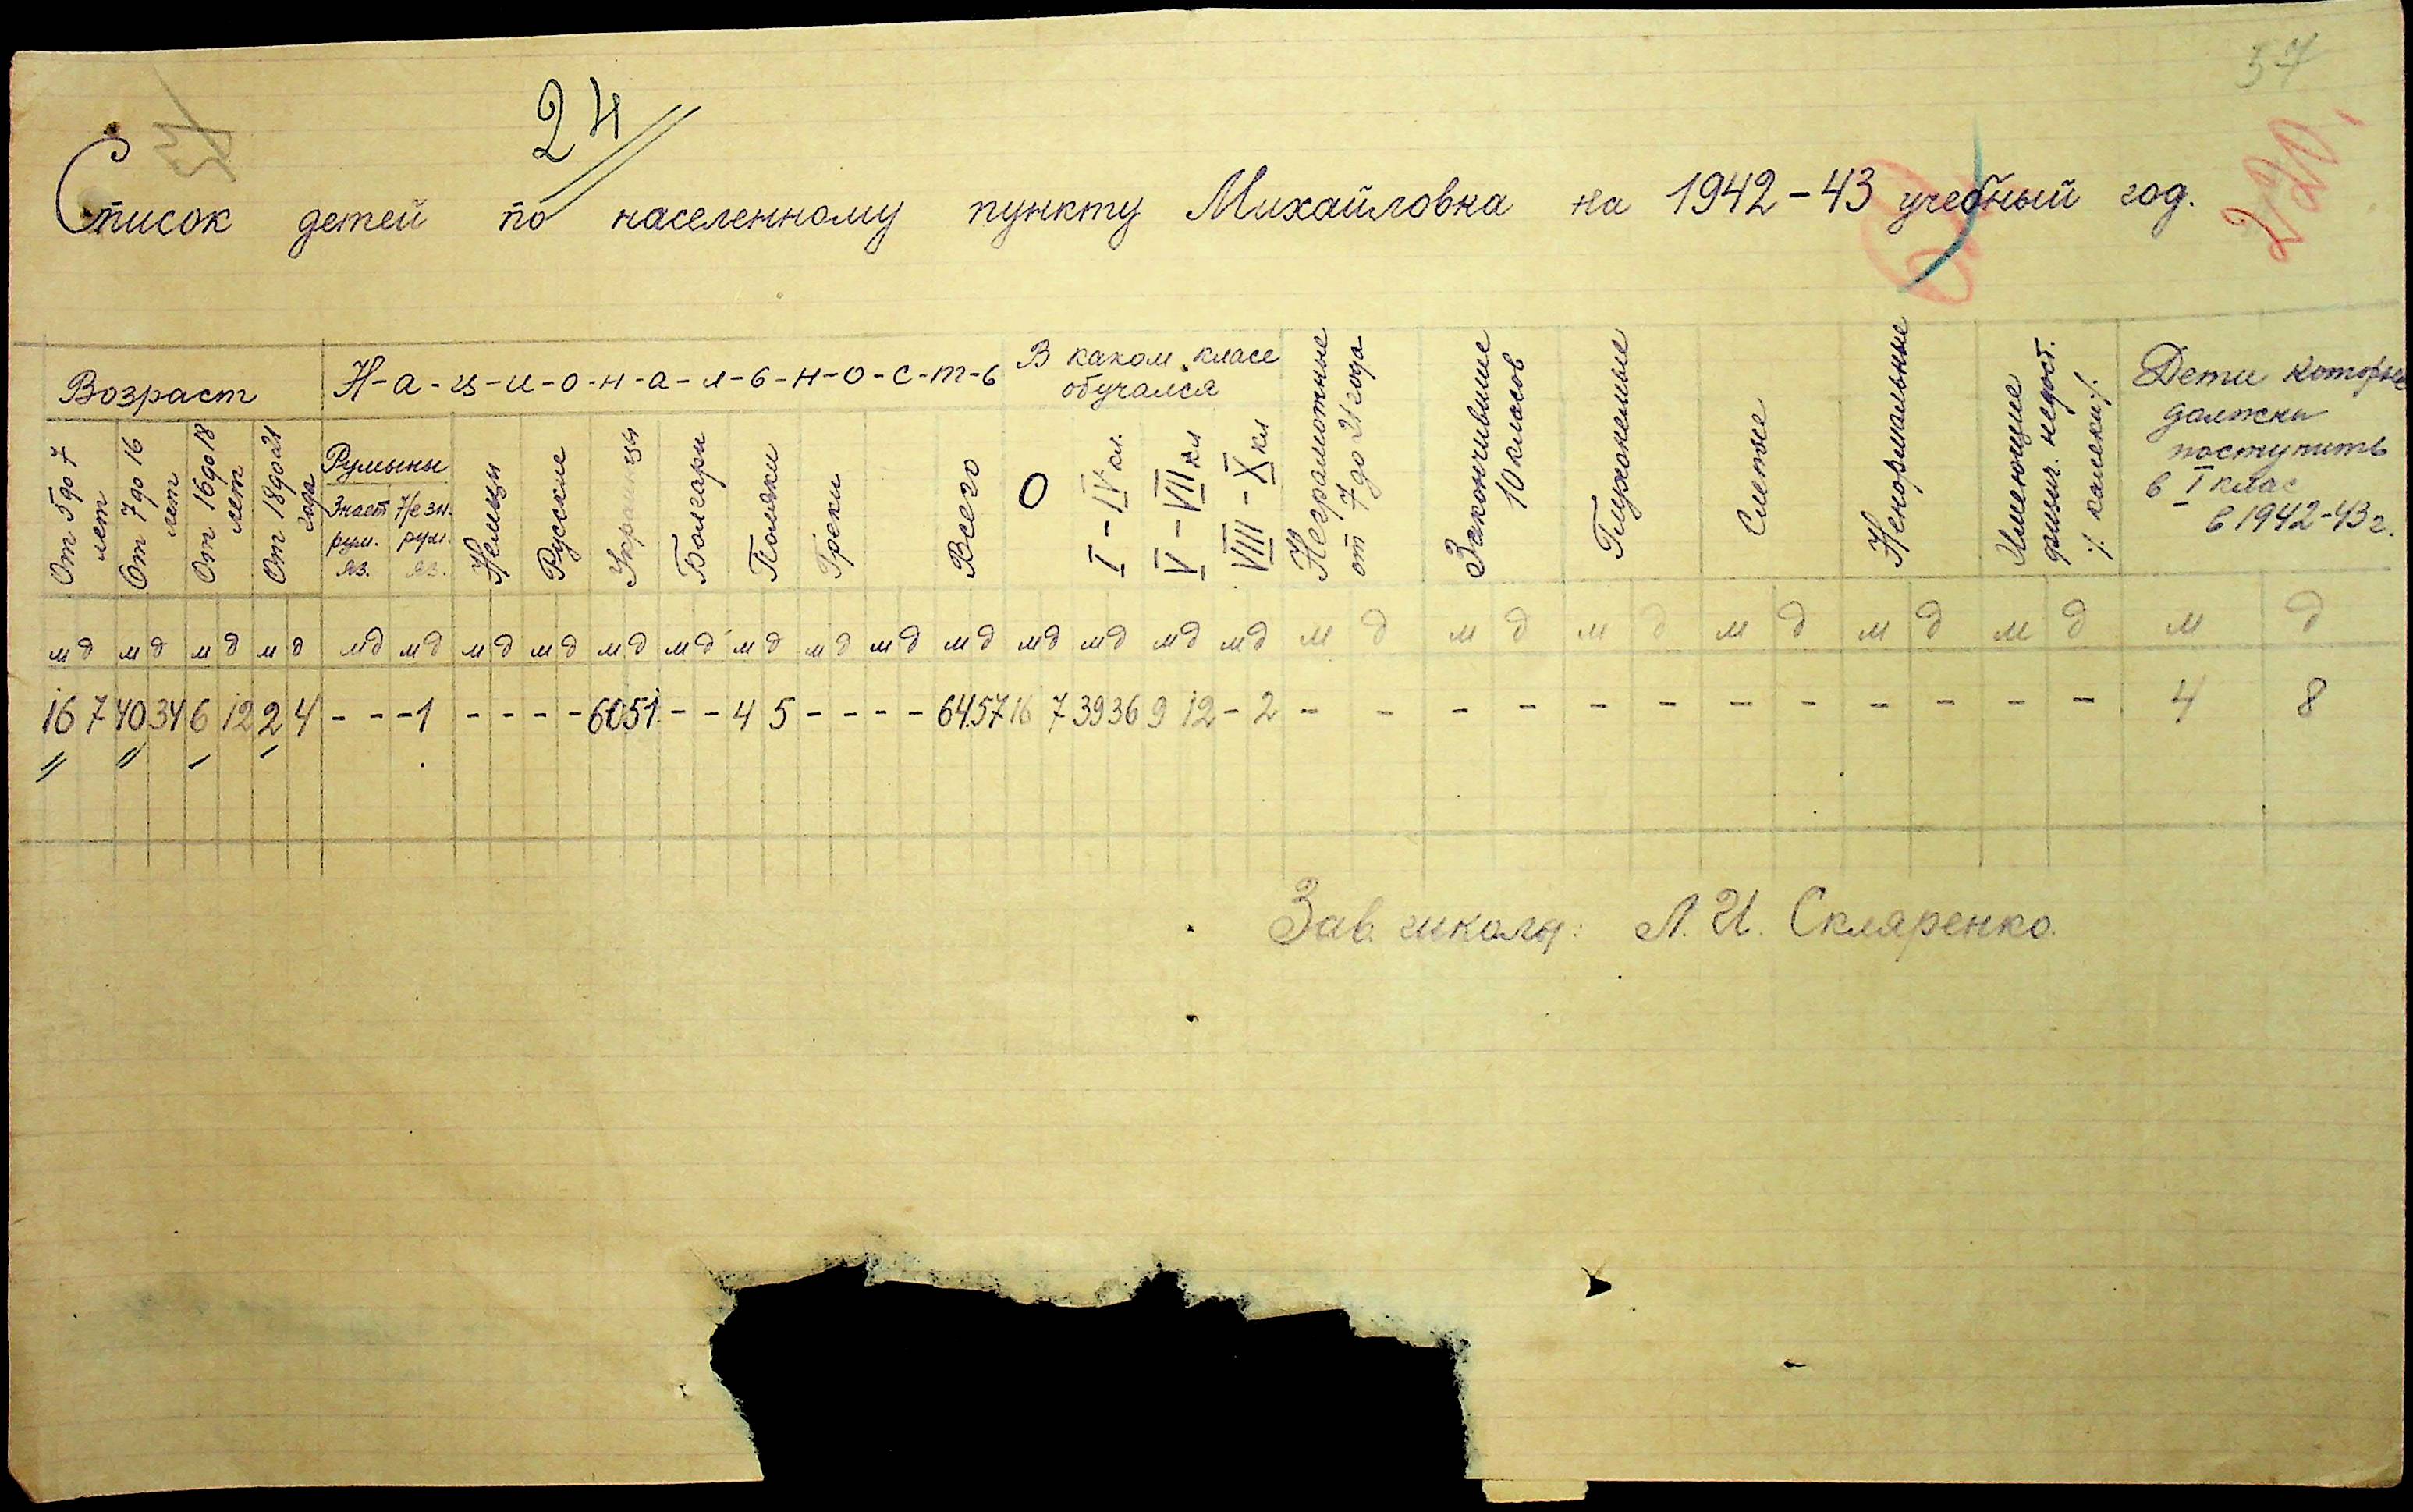 57
24
220
Список детей по населенному пункту Михайловка на 1942-43 учебный год.
Возраст
Н-а-ц-и-о-н-а-л-ь-н-о-с-т-ь
В каком класе
обучался
От 5 до 7
лет
От 7 до 16
лет
От 16 до 18
лет
От 18 до 21
года
Румыны
Знает
рум.
яз.
Не зн.
рум.
яз.
Немцы
Русские
Украинцы
Болгары
Поляки
Греки
Всего
О
I - IV кл.
V - VII кл
VIII - X кл
Неграмотные
от 7 до 21 года
Закончившие
10 класов
Глухонемые
Слепые
Ненормальные
Имеющие
физич. недост.
/. калеки /.
Дети которые
должны
поступить
в I клас
в 1942-43 г.
м д м д м д м д м д м д м д м д м д м д м д м д м д м д м д м д м д м д м д м д м д м д м д м д м д
16 7 40 34 6 12 2 4 - - - 1 - - - - 60 51 - - 4 5 - - - - 64 57 16 7 39 36 9 12 - 2 - - - - - - - - - - - - 4 8
Зав. школы: Л. И. Скляренко.